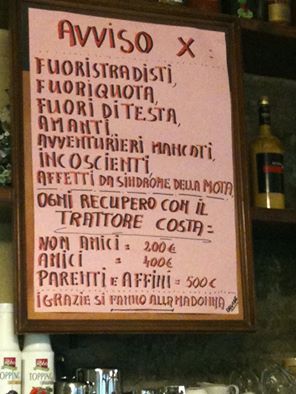 AVVISO X :
FUORISTRADISTI,
FUORIQUOTA,
FUORI DI TESTA,
AMANTI,
AVVENTURIERI MANCATI,
INCOSCIENTI,
AFFETTI DA SINDROME DELLA MOTA
OGNI RECUPERO CON IL
TRATTORE COSTA =
NON AMICI = 200 €
AMICI = 400€
PARENTI E AFFINI = 500€
I GRAZIE SI FANNO ALLA MADONNA
TOPPING
TOPPING